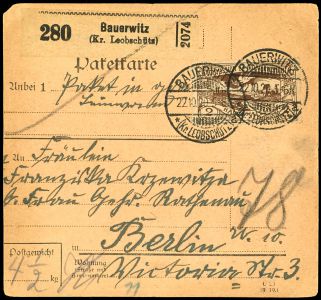 280
Bauerwitz
(Kr. Leobschütz)
2074
Paketkarte
Anbei 1 Paket in
BAUERWITZ
(Kr. LEOBSCHÜTZ)
BAUERWITZ
An Fräulein
Franziska Krzewitza
b. Frau Geh. Rathenau
78
Berlin W. 10.
Postgewicht
kg
4 1/2
Wohnung
Victoria Str. 3.